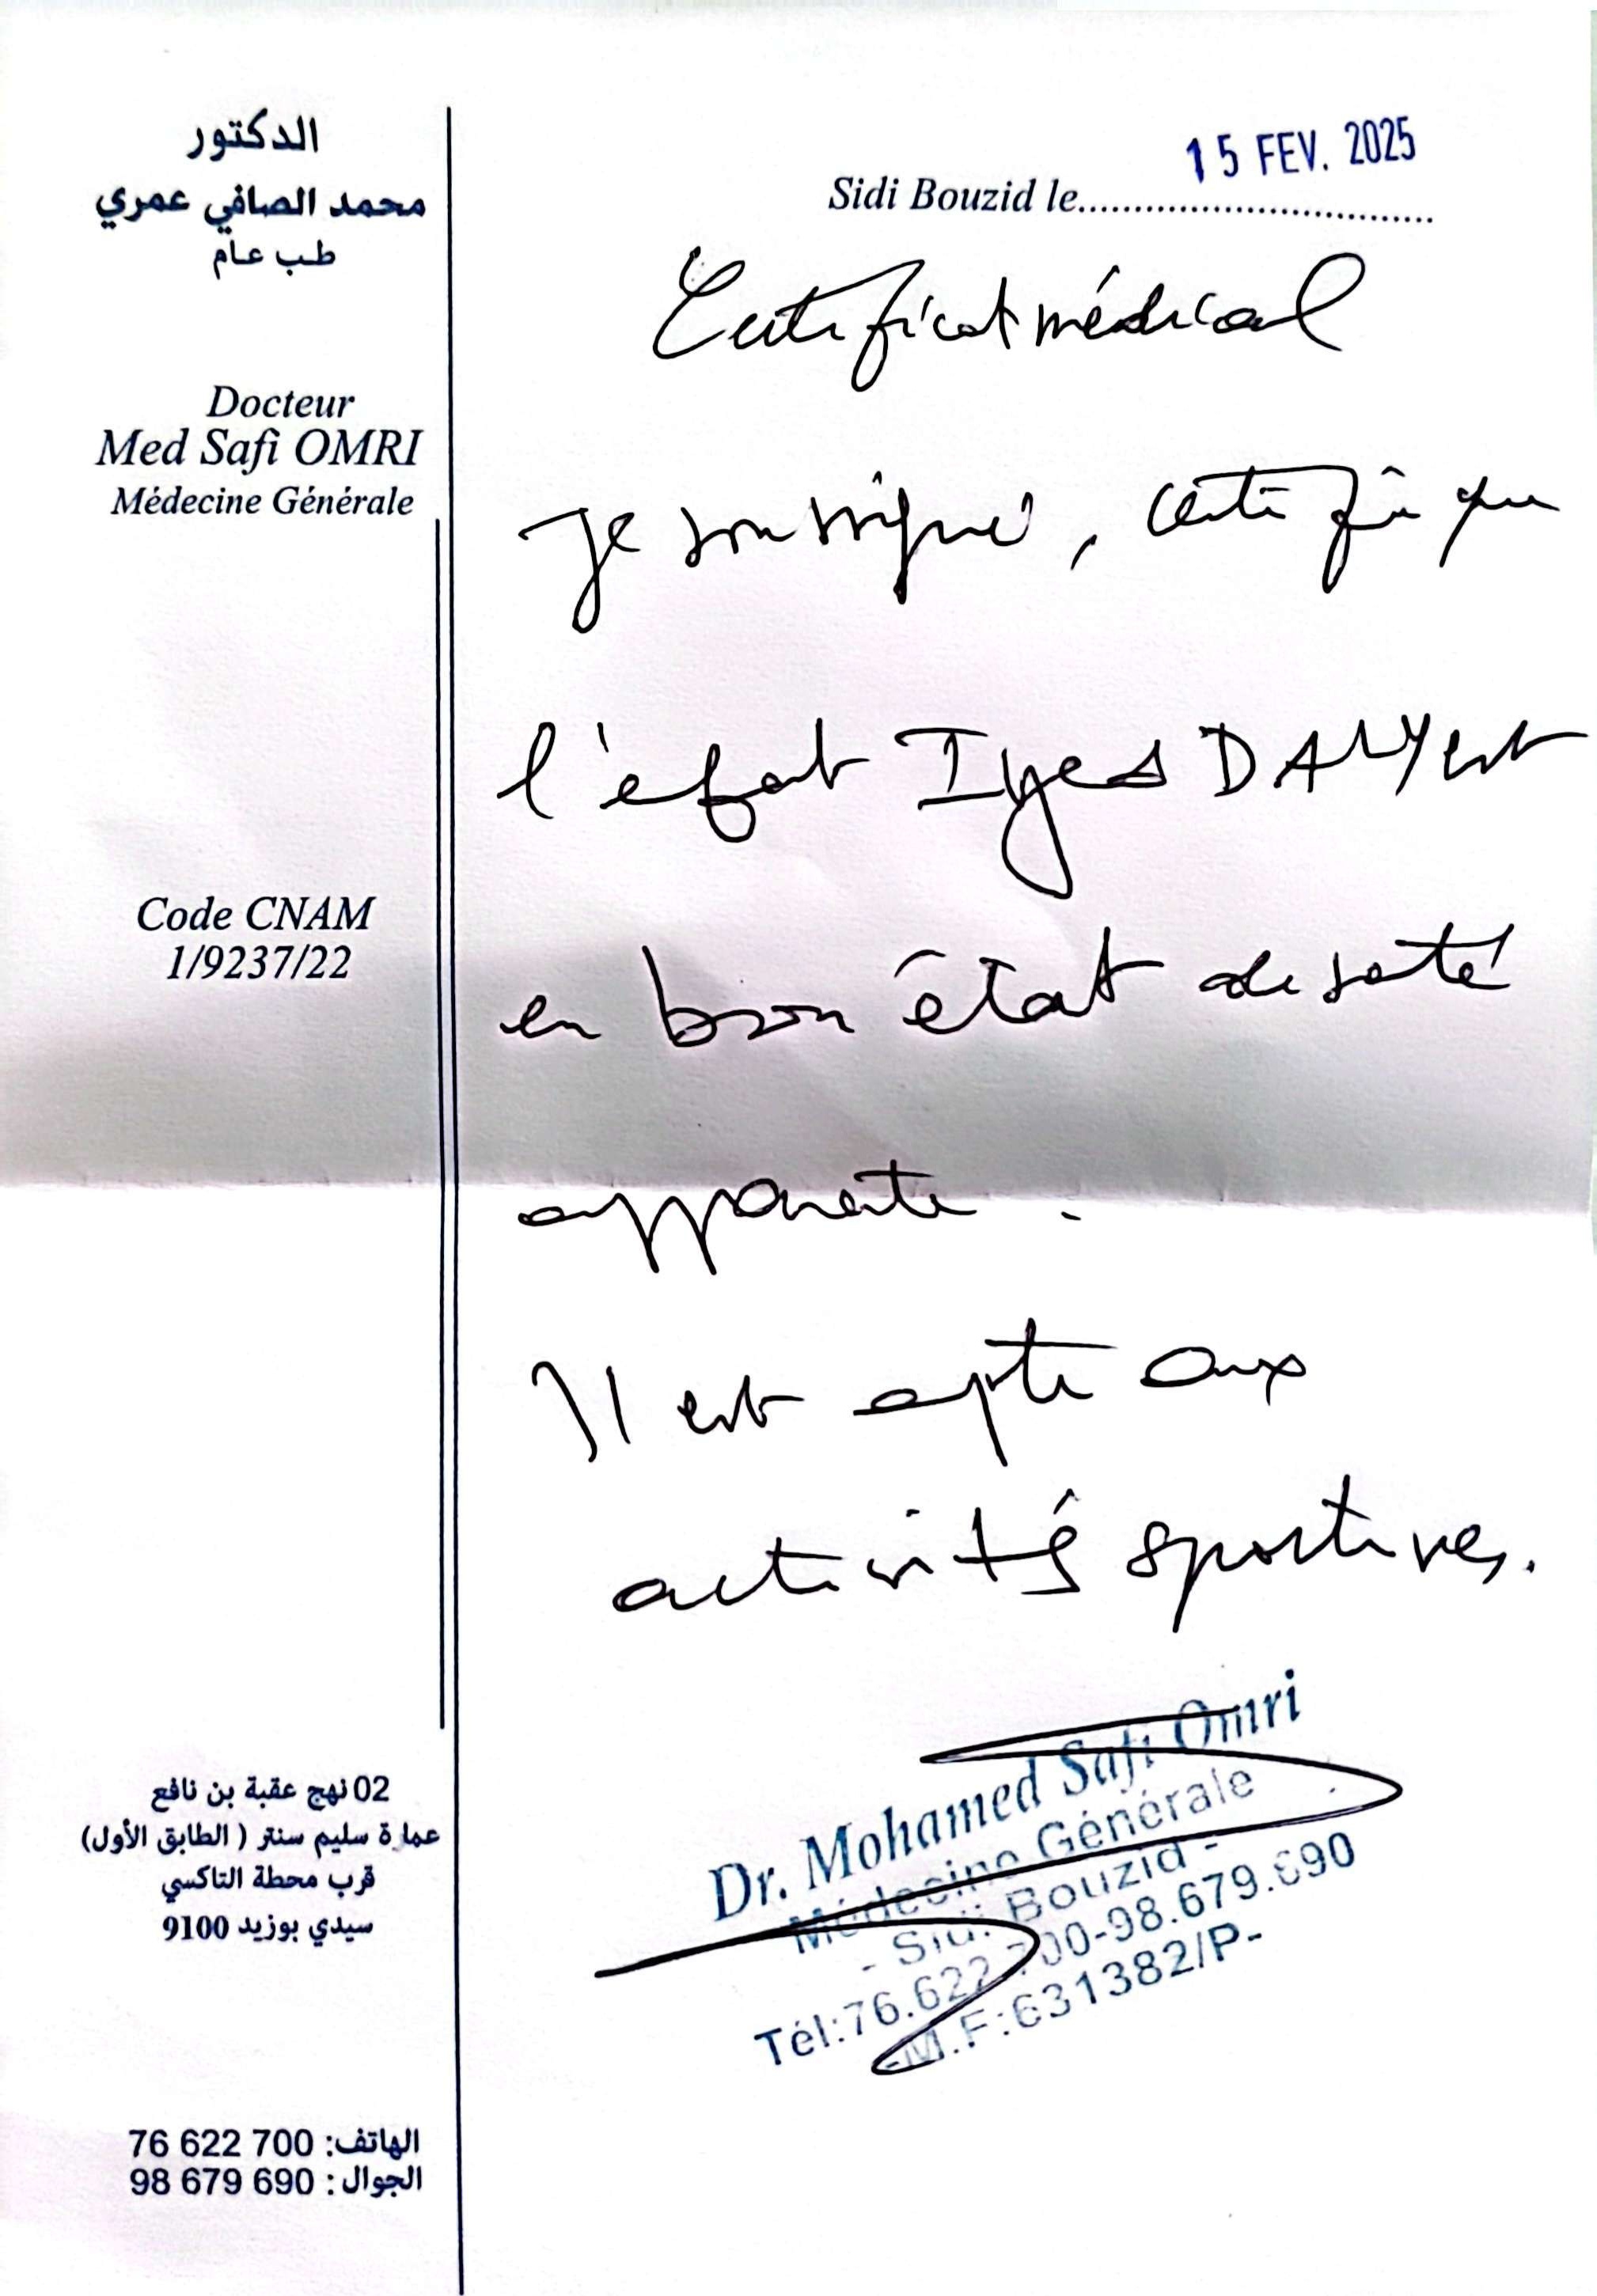 الدكتور
محمد الصافي عمري
طب عام
Docteur
Med Safi OMRI
Médecine Générale
Code CNAM
1/9237/22
02 نهج عقبة بن نافع
عمارة سليم سنتر ( الطابق الأول)
قرب محطة التاكسي
سيدي بوزيد 9100
الهاتف: 76 622 700
الجوال : 98 679 690
15 FEV. 2025
Sidi Bouzid le
Certificat médical
Je soussigné, certifie que
l'efant Iyes DALY est
en bon état de santé
apparente.
Il est apte aux
activités sportives.
Dr. Mohamed Safi Omri
Médecine Générale
- Sidi Bouzid -
Tél:76.622.700-98.679.690
-M.F:631382/P-